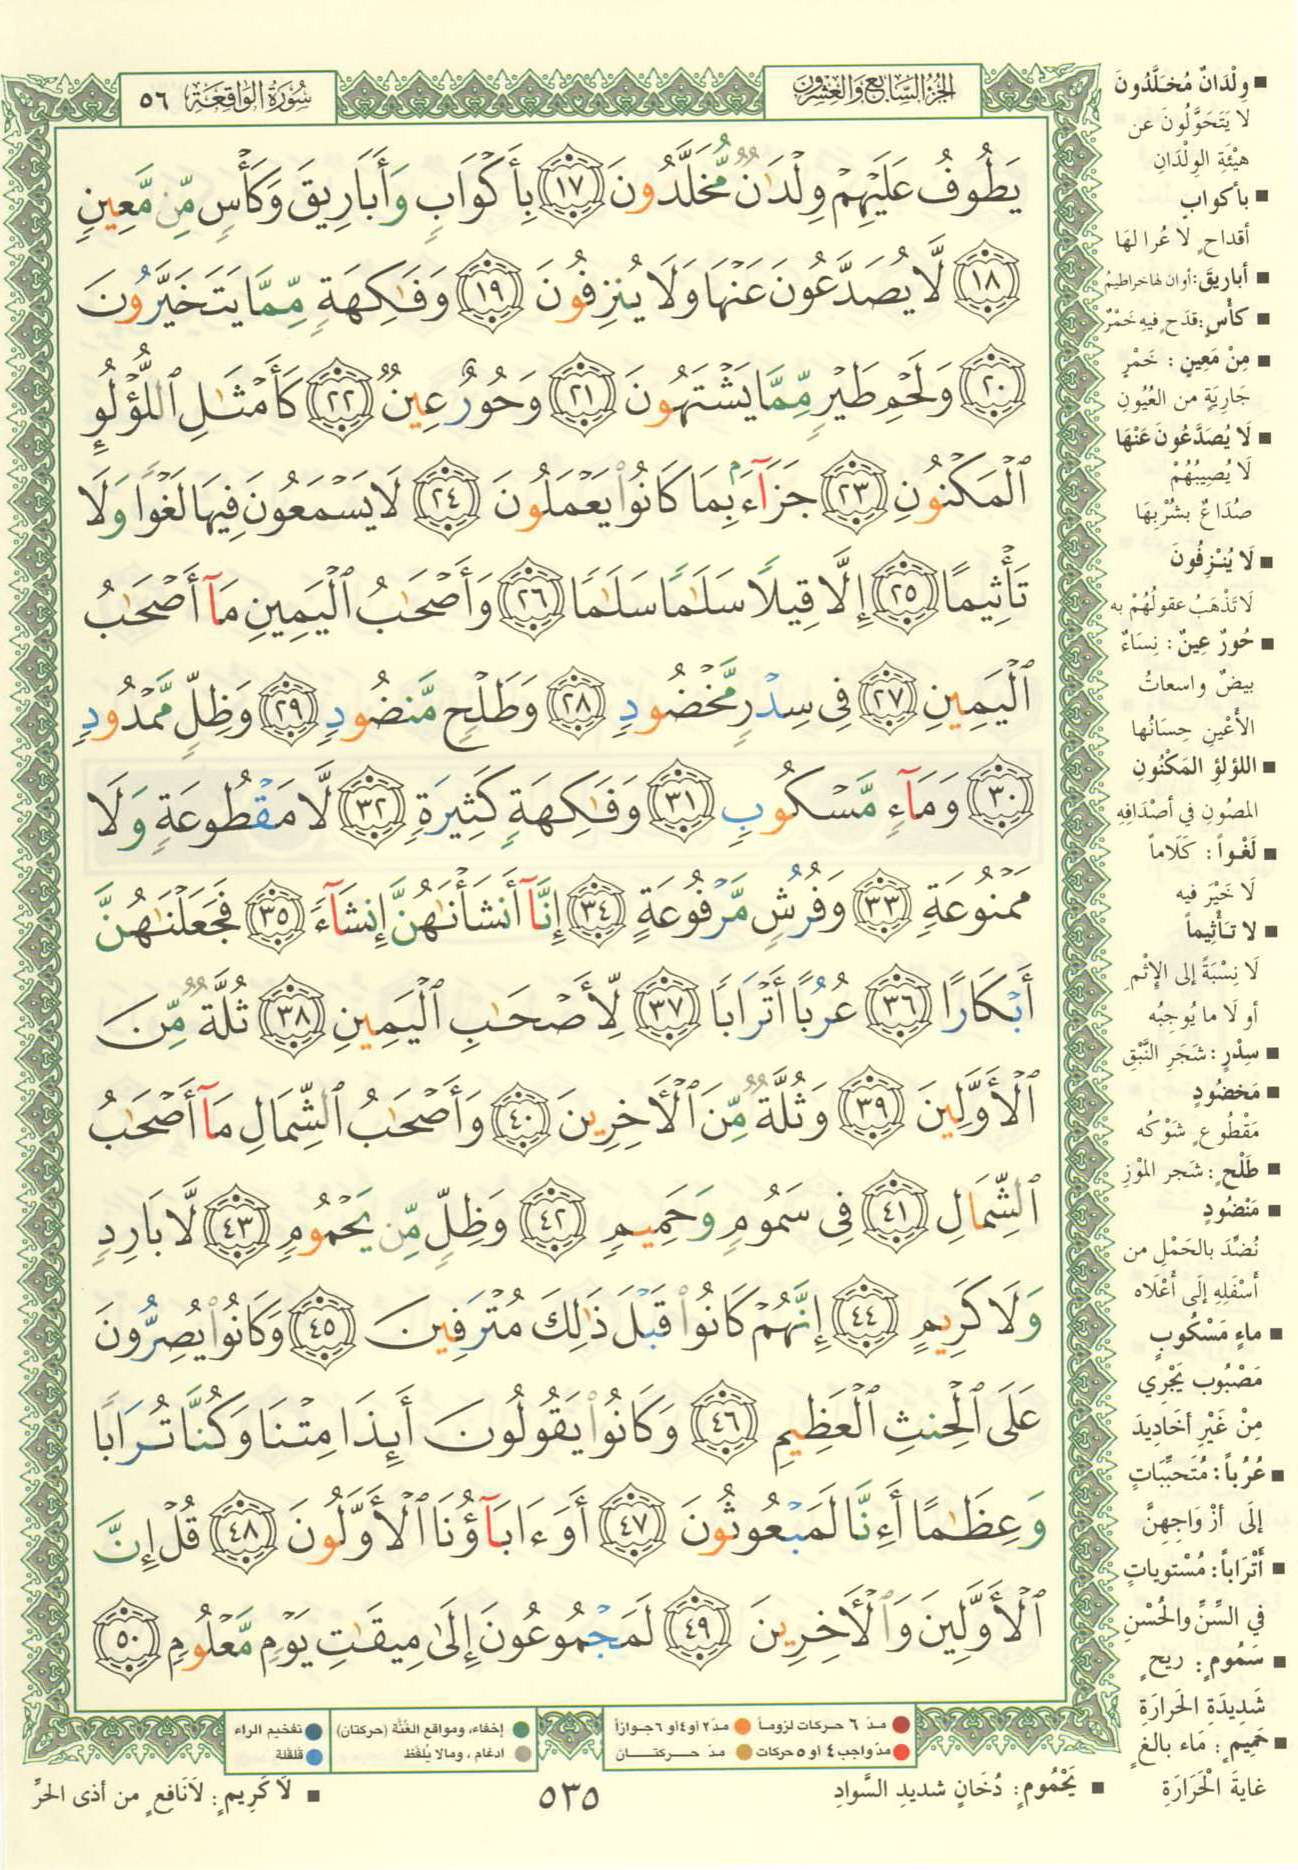 سُورَةُ الوَاقِعَة ٥٦
الجُزءُ السَّابِعُ وَالعِشرُونَ
يَطُوفُ عَلَيْهِمْ وِلْدَٰنٌ مُّخَلَّدُونَ ١٧ بِأَكْوَابٍ وَأَبَارِيقَ وَكَأْسٍ مِّن مَّعِينٍ
١٨ لَّا يُصَدَّعُونَ عَنْهَا وَلَا يُنزِفُونَ ١٩ وَفَٰكِهَةٍ مِّمَّا يَتَخَيَّرُونَ
٢٠ وَلَحْمِ طَيْرٍ مِّمَّا يَشْتَهُونَ ٢١ وَحُورٌ عِينٌ ٢٢ كَأَمْثَٰلِ ٱللُّؤْلُؤِ
ٱلْمَكْنُونِ ٢٣ جَزَآءًۢ بِمَا كَانُوا۟ يَعْمَلُونَ ٢٤ لَا يَسْمَعُونَ فِيهَا لَغْوًا وَلَا
تَأْثِيمًا ٢٥ إِلَّا قِيلًا سَلَٰمًا سَلَٰمًا ٢٦ وَأَصْحَٰبُ ٱلْيَمِينِ مَآ أَصْحَٰبُ
ٱلْيَمِينِ ٢٧ فِى سِدْرٍ مَّخْضُودٍ ٢٨ وَطَلْحٍ مَّنضُودٍ ٢٩ وَظِلٍّ مَّمْدُودٍ
٣٠ وَمَآءٍ مَّسْكُوبٍ ٣١ وَفَٰكِهَةٍ كَثِيرَةٍ ٣٢ لَّا مَقْطُوعَةٍ وَلَا
مَمْنُوعَةٍ ٣٣ وَفُرُشٍ مَّرْفُوعَةٍ ٣٤ إِنَّآ أَنشَأْنَٰهُنَّ إِنشَآءً ٣٥ فَجَعَلْنَٰهُنَّ
أَبْكَارًا ٣٦ عُرُبًا أَتْرَابًا ٣٧ لِّأَصْحَٰبِ ٱلْيَمِينِ ٣٨ ثُلَّةٌ مِّنَ
ٱلْأَوَّلِينَ ٣٩ وَثُلَّةٌ مِّنَ ٱلْءَاخِرِينَ ٤٠ وَأَصْحَٰبُ ٱلشِّمَالِ مَآ أَصْحَٰبُ
ٱلشِّمَالِ ٤١ فِى سَمُومٍ وَحَمِيمٍ ٤٢ وَظِلٍّ مِّن يَحْمُومٍ ٤٣ لَّا بَارِدٍ
وَلَا كَرِيمٍ ٤٤ إِنَّهُمْ كَانُوا۟ قَبْلَ ذَٰلِكَ مُتْرَفِينَ ٤٥ وَكَانُوا۟ يُصِرُّونَ
عَلَى ٱلْحِنثِ ٱلْعَظِيمِ ٤٦ وَكَانُوا۟ يَقُولُونَ أَئِذَا مِتْنَا وَكُنَّا تُرَابًا
وَعِظَٰمًا أَءِنَّا لَمَبْعُوثُونَ ٤٧ أَوَءَابَآؤُنَا ٱلْأَوَّلُونَ ٤٨ قُلْ إِنَّ
ٱلْأَوَّلِينَ وَٱلْءَاخِرِينَ ٤٩ لَمَجْمُوعُونَ إِلَىٰ مِيقَٰتِ يَوْمٍ مَّعْلُومٍ ٥٠
■ وِلْدَانٌ مُخَلَّدُونَ
لا يَتَحَوَّلُونَ عن
هَيْئَةِ الوِلْدَانِ
■ بأكوابٍ
أقداحٍ لا عُرا لهَا
■ أباريقَ: أوان لها خراطيمُ
■ كأْسٍ: قدَحٍ فيهِ خَمْرٌ
■ مِنْ مَعِينٍ: خَمْرٍ
جَارِيَةٍ من العُيُونِ
■ لَا يُصَدَّعُونَ عَنْهَا
لَا يُصِيبُهُمْ
صُدَاعٌ بشُرْبِهَا
■ لَا يُنْزِفُونَ
لَا تَذْهَبُ عقولُهُمْ به
■ حُورٌ عِينٌ: نِسَاءٌ
بيضٌ واسعاتُ
الأَعْيُنِ حِسَانُها
■ اللؤلؤِ المَكْنُونِ
المصُونِ في أصْدَافِهِ
■ لَغْواً: كَلَاماً
لَا خَيْرَ فيه
■ لا تَأْثِيماً
لَا نِسْبَةً إلى الإِثْمِ
أو لَا ما يُوجِبُه
■ سِدْرٍ: شَجَرِ النَّبْقِ
■ مَخضُودٍ
مَقْطُوعٍ شَوْكُه
■ طَلْحٍ: شجر الموْزِ
■ مَنْضُودٍ
نُضِّدَ بالحَمْلِ من
أَسْفَلِهِ إلَى أَعْلَاه
■ ماءٍ مَسْكُوبٍ
مَصْبُوب يَجْرِي
مِنْ غَيْرِ أخَادِيدَ
■ عُرُباً: مُتَحَبِّبَاتٍ
إلَى أزْوَاجِهِنَّ
■ أَتْرَاباً: مُسْتوياتٍ
في السِّنِّ والحُسْنِ
■ سَمُومٍ: ريحٍ
شَدِيدَةِ الحَرارَةِ
■ حَمِيمٍ: مَاء بالغٍ
غايةَ الْحَرَارَةِ
■ يَحْمُومٍ: دُخَانٍ شديدِ السَّوادِ
■ لَا كَرِيمٍ: لَا نَافِعٍ من أذى الحرِّ
مدّ ٦ حركات لزوماً
مدّ ٢ أو ٤ أو ٦ جوازاً
إخفاء، ومواقع الغُنَّة (حركتان)
تفخيم الراء
مدّ واجب ٤ أو ٥ حركات
مدّ حركتان
ادغام، ومالا يُلفَظ
قلقلة
٥٣٥